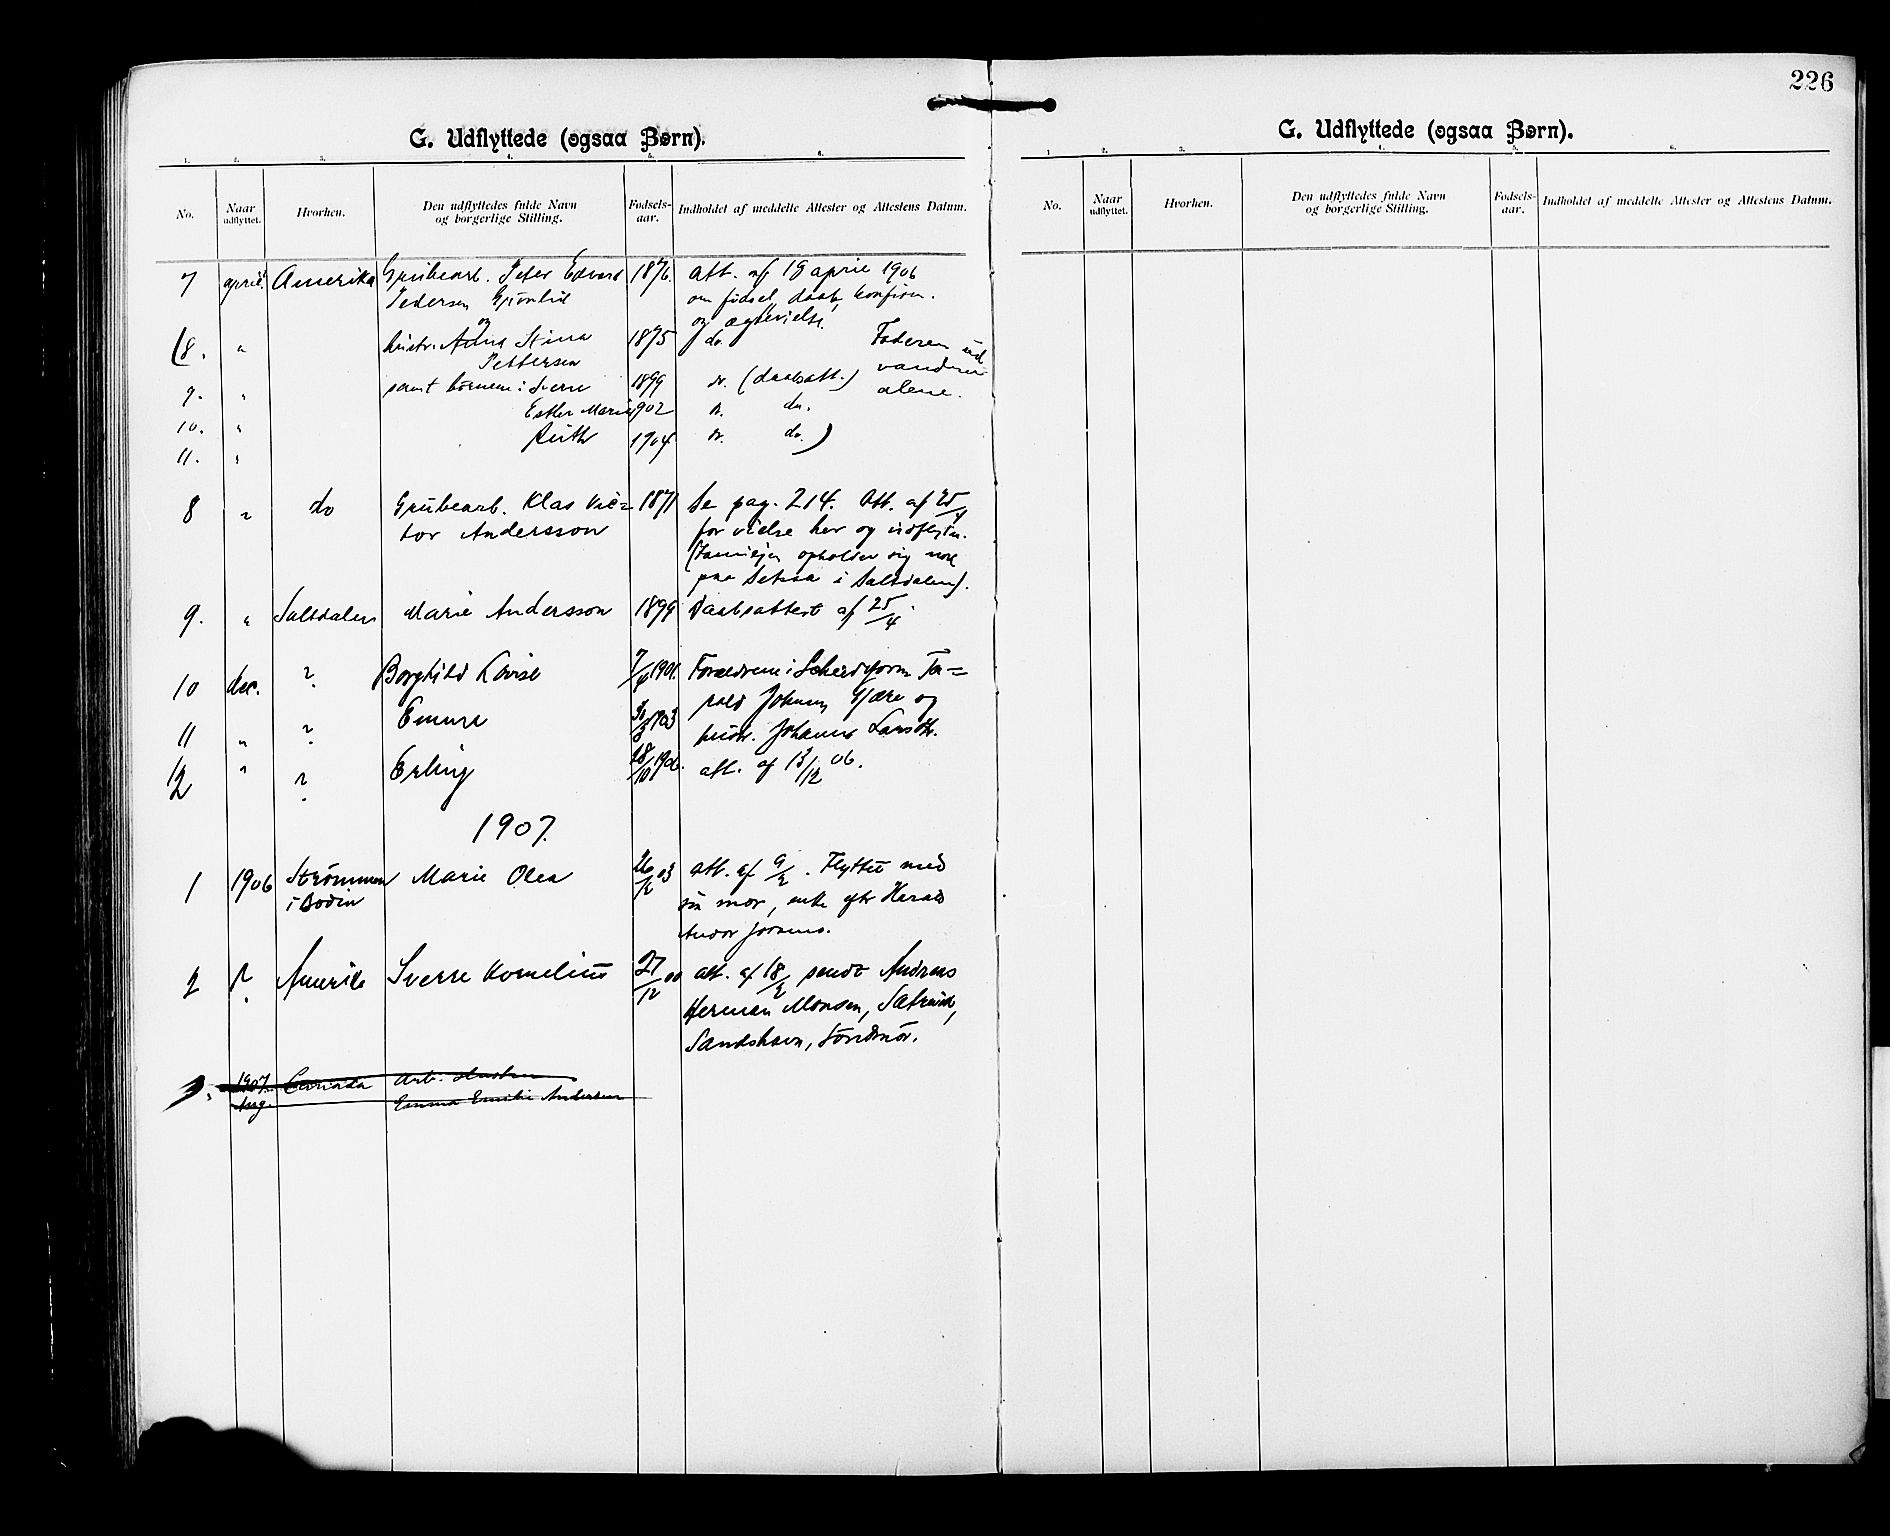 226
G. Udflyttede (ogsaa Børn).
1. 2. 3. 4. 5. 6.
No. Naar udflyttet. Hvorhen. Den udflyttedes fulde Navn og borgerlige Stilling. Fødsels-aar. Indholdet af meddelte Attester og Attestens Datum.
7 april Amerika Grubearb. Peter Edvard 1876. Att. af 19 april 1906
Pedersen Grønlid om fødsel, daab, konfirm.
og og ægtevielse.
(8. " hustr. Anna Stina 1875 do. Faderen ud
Pettersen vandrer
9. " samt børnene: Sverre 1899 do. (daabsatt.) alene.
10. " Esther Marie 1902 do. do.
11. " Ruth 1904 do. do.)
8 " do Grubearb. Klas Vic= 1871 Se pag. 214. Att. af 25/4
tor Andersson for vielse her og udflytn.
(Familjen opholder sig nok
paa Setsaa i Saltdalen).
9. " Saltdalen Marie Andersson 1899 Daabsattest af 25/4.
10 dec. ? Borghild Lovise 7/4 1901. Forældrene: Ta=
rald Johnsen Gjære og
11 " ? Emma 30/3 1903 hustr. Johanna Larsdtr.
12 " ? Erling 18/10 1906. att. af 13/12 06.
1907.
1 1906 Strømmen Marie Olea 26/12 03 Att. af 9/2. Flyttet med
i Bodin sin mor, enke efter Harald
Andor
2 ? Amerika Sverre Kornelius 27/12 00 att. af 18/2 sendt Andreas
Herman Monsen,
Sandshavn, Søndmør.
3. 1907. Canada Arb. Hustru
Aug. Emma Emilie Andersen
G. Udflyttede (ogsaa Børn).
1. 2. 3. 4. 5. 6.
No. Naar udflyttet. Hvorhen. Den udflyttedes fulde Navn og borgerlige Stilling. Fødsels-aar. Indholdet af meddelte Attester og Attestens Datum.